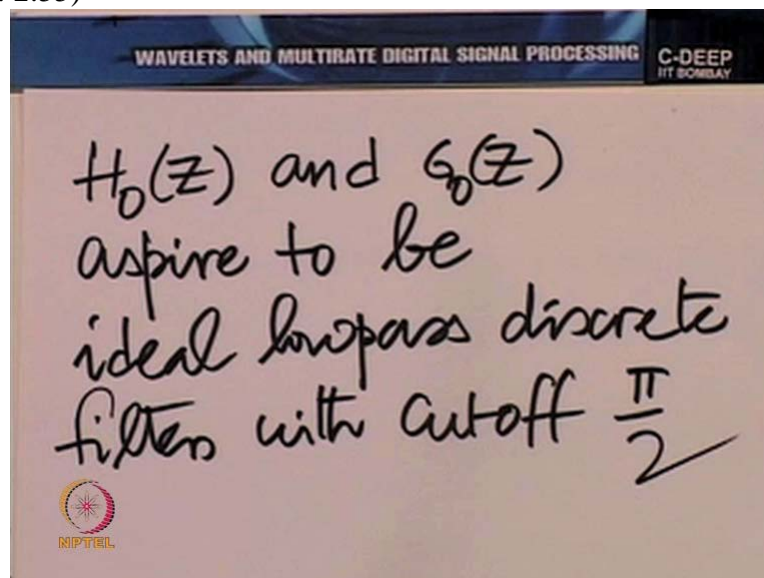 WAVELETS AND MULTIRATE DIGITAL SIGNAL PROCESSING
C-DEEP
IIT BOMBAY
H₀(Z) and G₀(Z)
aspire to be
ideal lowpass discrete
filters with cutoff π/2
NPTEL